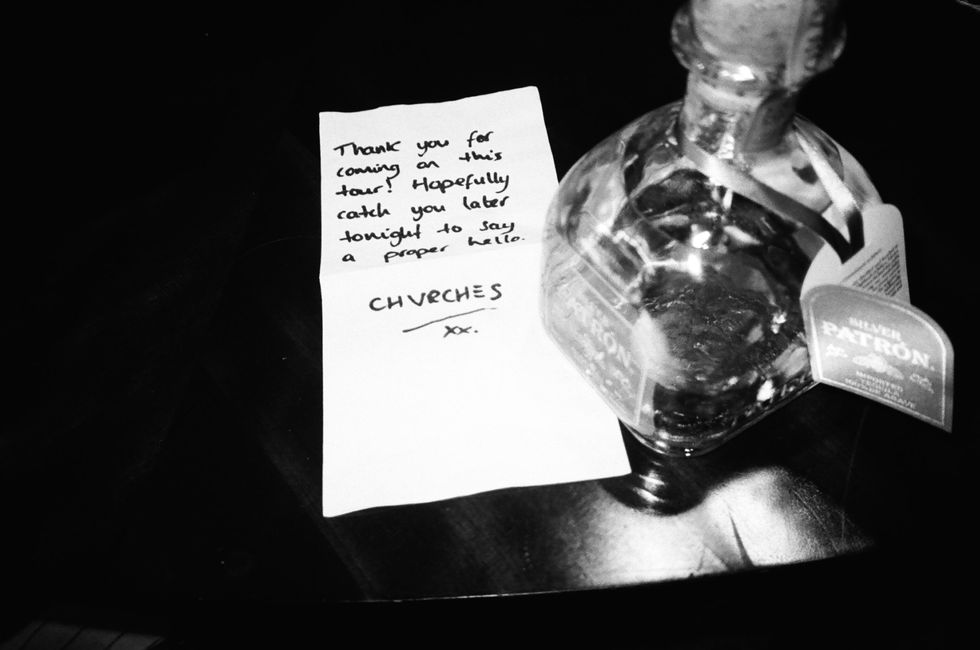 Thank you for
coming on this
tour! Hopefully
catch you later
tonight to say
a proper hello.
CHVRCHES
xx.
SILVER
PATRÓN
IMPORTED
TEQUILA
100% DE AGAVE
PATRÓN